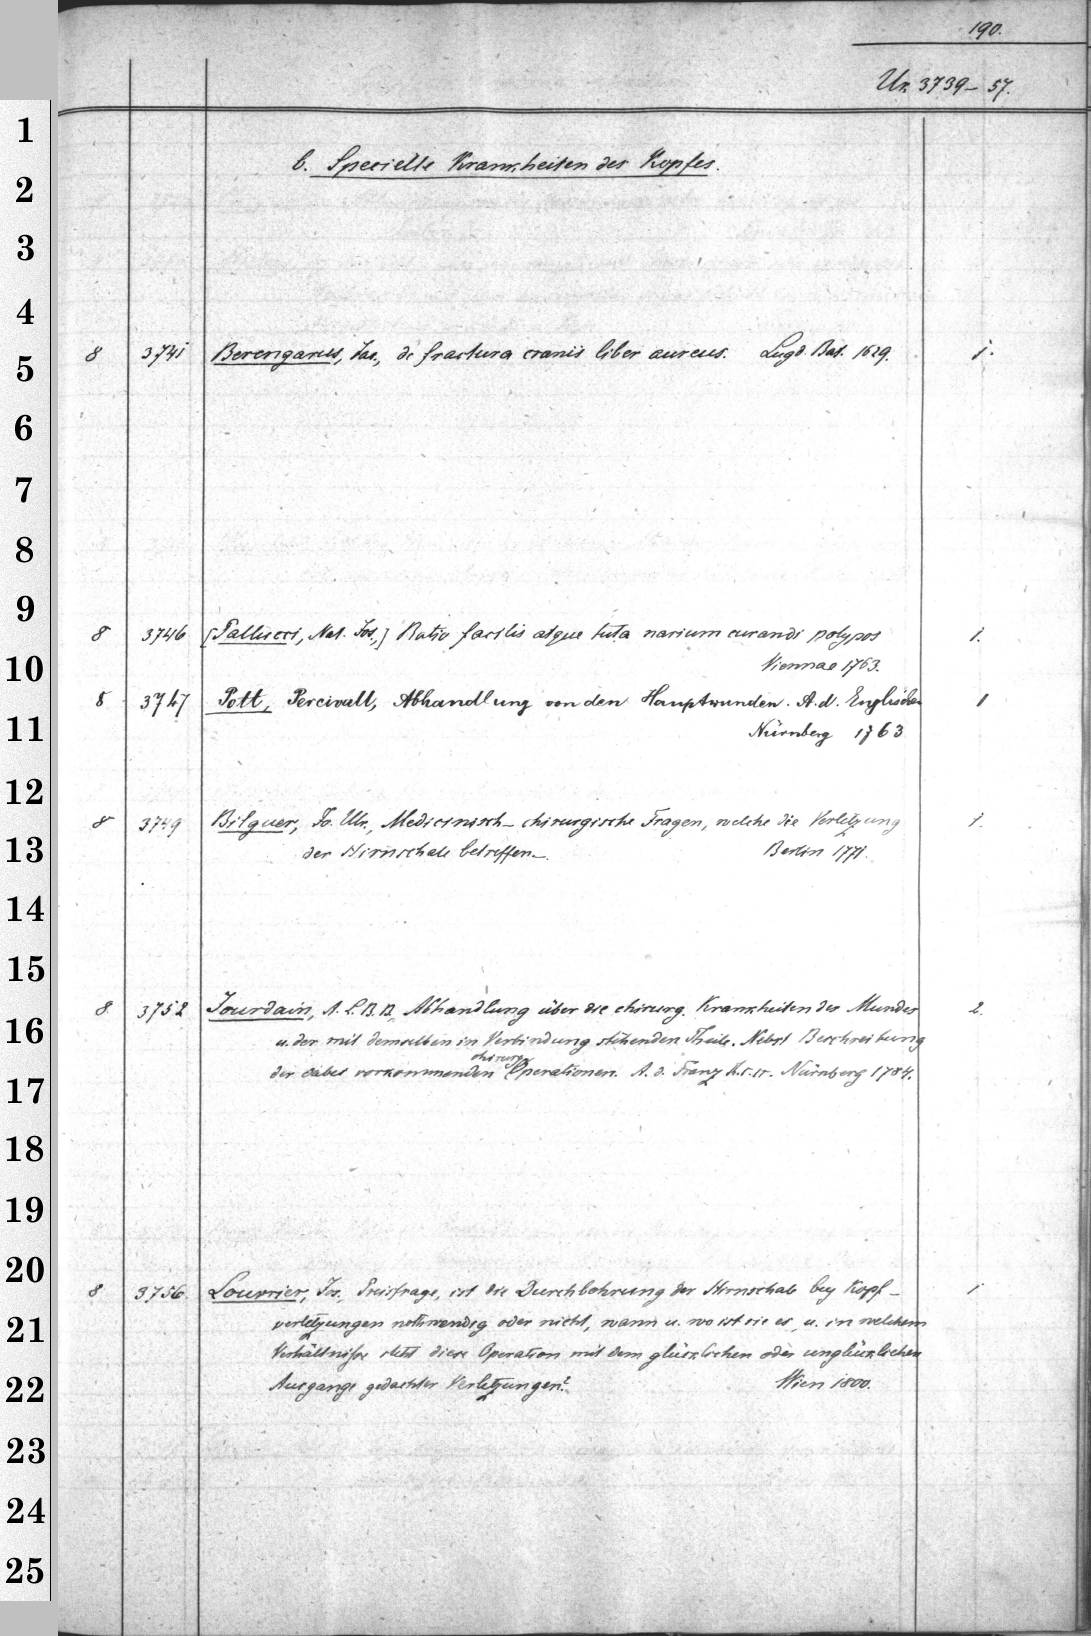 190.
Uz. 3739-57.
1
b. Specielle Krankheiten des Kopfes.
2
3
4
8 3741 Berengarius, Jac., de fractura cranii liber aureus. Lugd. Bat. 1629. 1.
5
6
7
8
9
8 3746 [Pallucci, Nat. Jos.,] Ratio facilis atque tuta narium curandi polypos 1.
Viennae 1763.
10
8 3747 Pott, Percivall, Abhandlung von den Hauptwunden. A. d. Englischen 1
Nürnberg 1763
11
12
8 3749 Bilguer, Jo. Ulr., Medicinisch-chirurgische Fragen, welche die Verletzung 1.
der Hirnschale betreffen. Berlin 1771.
13
14
15
8 3752 Jourdain, A. L. B. B., Abhandlung über die chirurg. Krankheiten des Mundes 2.
16
u. der mit demselben in Verbindung stehenden Theile. Nebst Beschreibung
der dabei vorkommenden chirurg. Operationen. A. d. Franz. Nürnberg 1784.
17
18
19
20
8 3756. Louvrier, Jos., Preisfrage, ist die Durchbohrung der Hirnschale bey Kopf- 1
verletzungen nothwendig oder nicht, wann u. wo ist sie es, u. in welchem
21
Verhältnisse steht diese Operation mit dem glücklichen oder unglücklichen
Ausgange gedachter Verletzungen? Wien 1800.
22
23
24
25